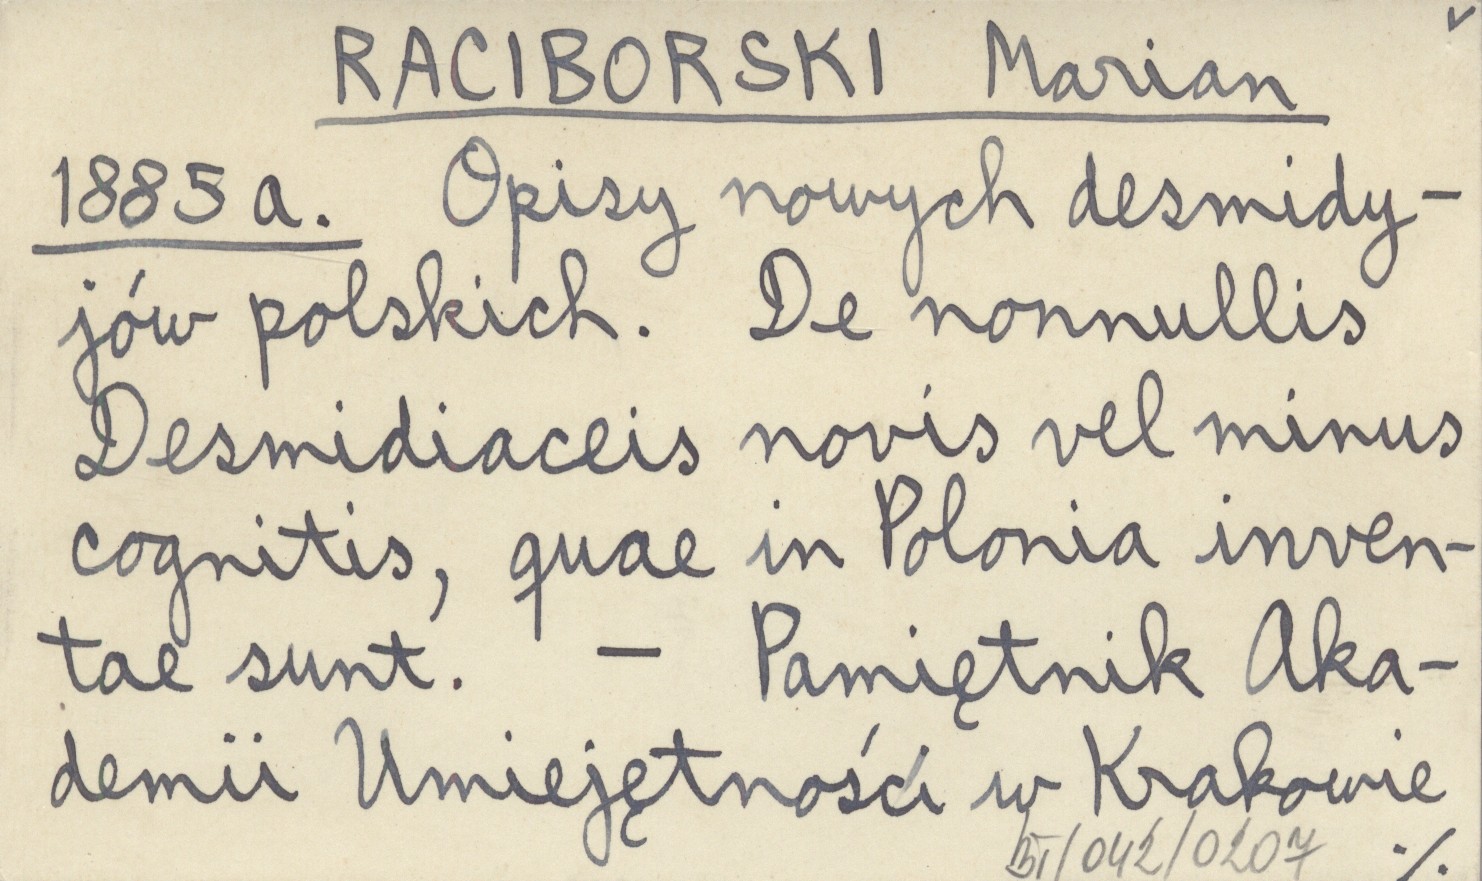 RACIBORSKI Marian
1885 a. Opisy nowych desmidy-
jów polskich. De nonnullis
Desmidiaceis novis vel minus
cognitis, quae in Polonia inven-
tae sunt. — Pamiętnik Aka-
demii Umiejętności w Krakowie
BI/042/0207 ·/.